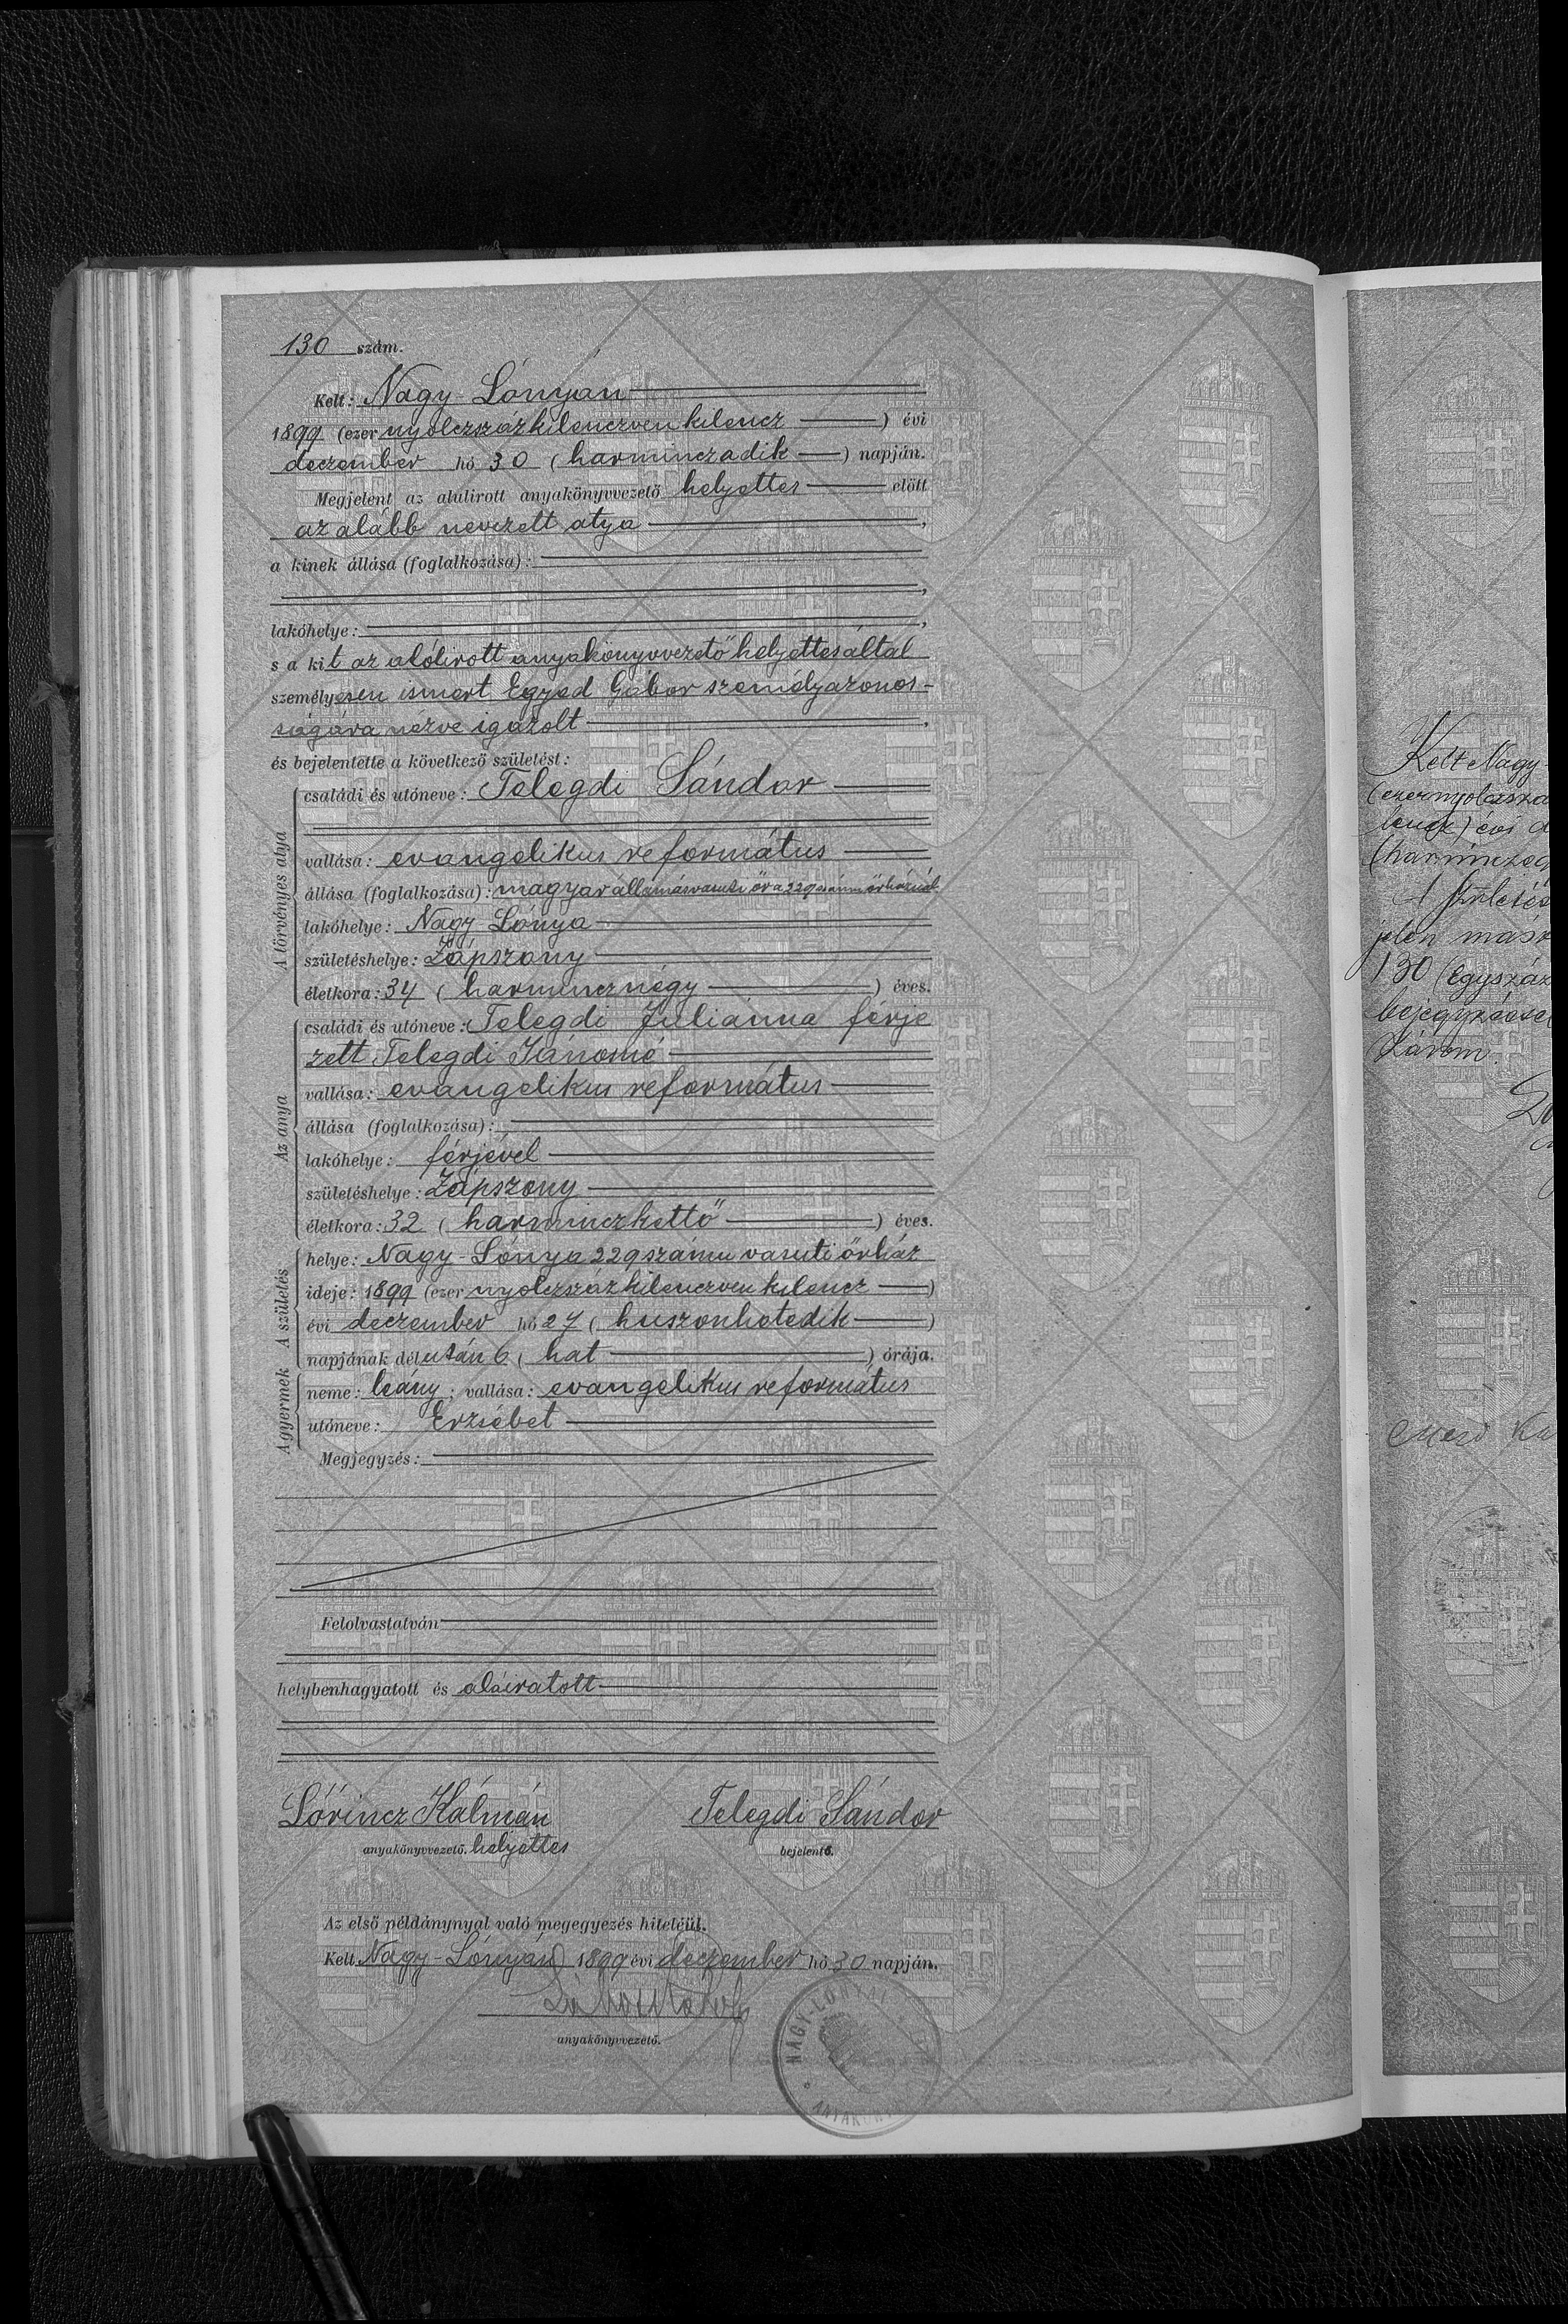 130 szám.
Kelt: Nagy-Lónyán
1899 (ezer nyolczszázkilenczvenkilencz) évi
deczember hó 30 (harminczadik) napján.
Megjelent az alulirott anyakönyvvezető helyettes előtt
az alább nevezett atya,
a kinek állása (foglalkozása):
lakóhelye:
s a kit az alólirott anyakönyvvezető helyettes által
személyesen ismert Egyed Gábor személyazonos-
ságára nézve igazolt,
és bejelentette a következő születést:
A törvényes atya
családi és utóneve: Telegdi Sándor
vallása: evangelikus református
állása (foglalkozása): magyar államásvasuti őr a 229 számu őrháznál
lakóhelye: Nagy Lónya
születéshelye: Zápszony
életkora: 34 (harmincznégy) éves.
Az anya
családi és utóneve: Telegdi Juliánna férje
zett Telegdi
vallása: evangelikus református
állása (foglalkozása):
lakóhelye: férjével
születéshelye: Zápszony
életkora: 32 (harminczkettő) éves.
A születés
helye: Nagy-Lónya 229 számu vasuti őrház
ideje: 1899 (ezer nyolczszázkilenczvenkilencz)
évi deczember hó 27 (huszonhetedik)
napjának délután 6 (hat) órája.
A gyermek
neme: leány; vallása: evangelikus református
utóneve: Erzsébet
Megjegyzés:
Felolvastatván
helybenhagyatott és aláiratott
Lőrincz Kálmán Telegdi Sándor
anyakönyvvezető. helyettes bejelentő.
Az első példánynyal való megegyezés hiteléül.
Kelt Nagy-Lónyán 1899 évi deczember hó 30 napján.
anyakönyvvezető.
NAGY-LÓNYAI
Kelt Nagy-
(ezernyolczszá
lencz) évi d
(harminczad
A születés
jelen másk
130 (egyszáz
bejegyzéssel
zárom.